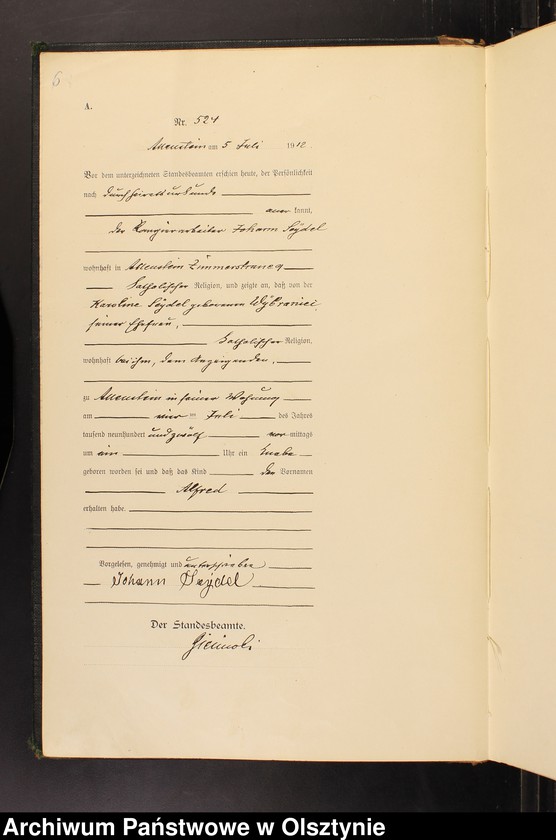 A.
Nr. 521
Allenstein am 5 Juli 1912.
Vor dem unterzeichneten Standesbeamten erschien heute, der Persönlichkeit
nach durch Heiratsurkunde
aner kannt,
der Rangierarbeiter Johann Seydel
wohnhaft in Allenstein
katholischer Religion, und zeigte an, daß von der
Karoline Seydel geborenen
seiner Ehefrau,
katholischer Religion,
wohnhaft bei ihm, dem Anzeigenden,
zu Allenstein in seiner Wohnung
am vier ten Juli des Jahres
tausend neunhundert und zwölf vor mittags
um ein Uhr ein Knabe
geboren worden sei und daß das Kind den Vornamen
Alfred
erhalten habe.
Vorgelesen, genehmigt und unterschrieben
Johann Seydel
Der Standesbeamte.
Archiwum Państwowe w Olsztynie